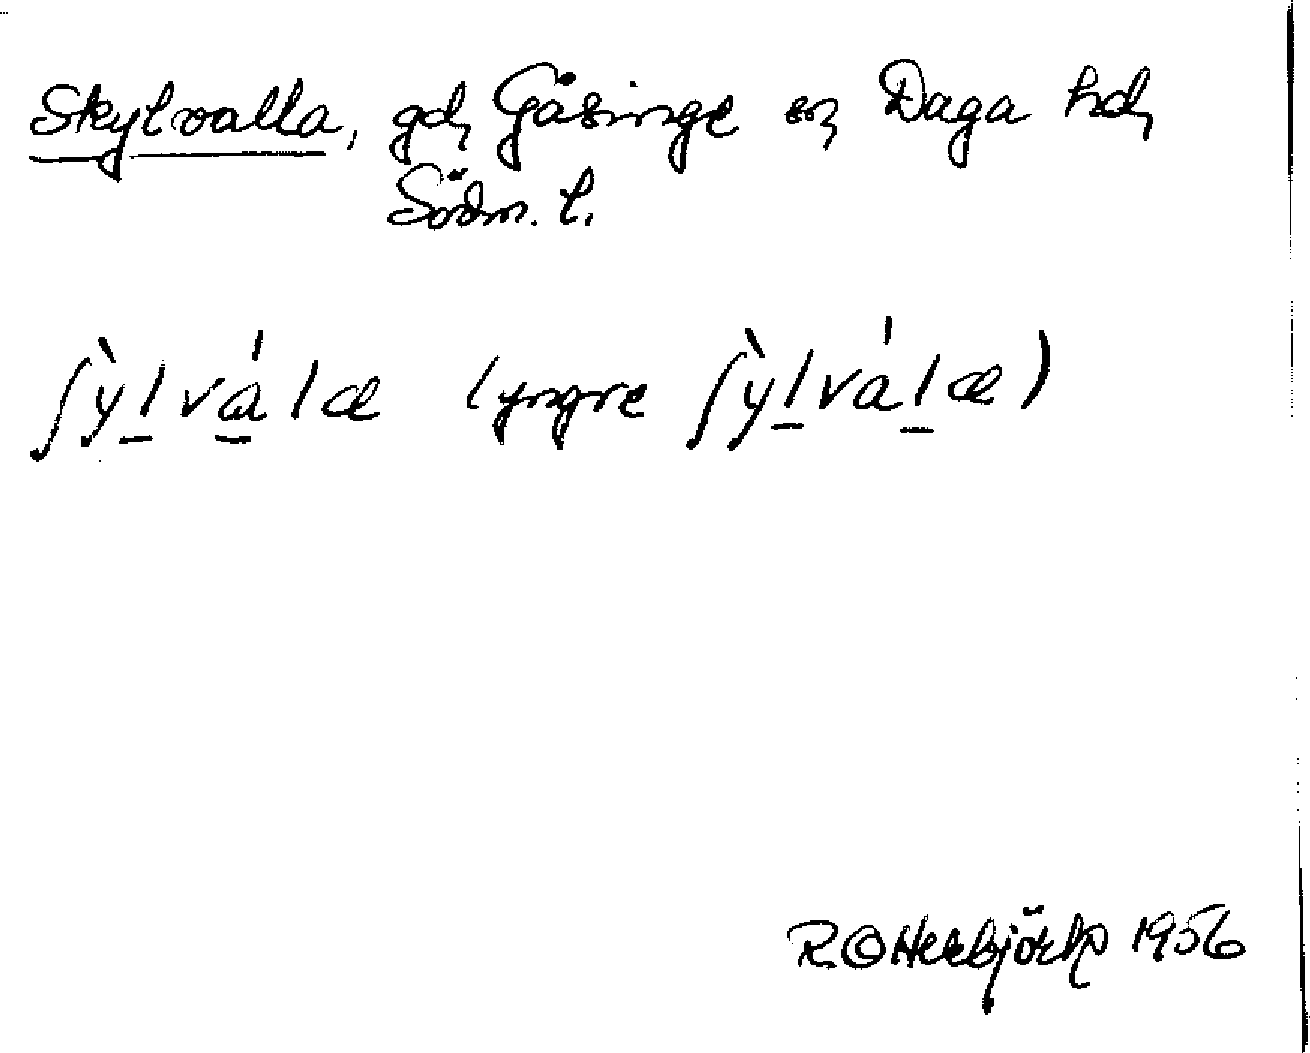 Skylvalla, gd, Gåsinge sn, Daga hd,
Södm. l.
ʃỳl̲vá̲læ (yngre ʃỳl̲vál̲æ)
1956